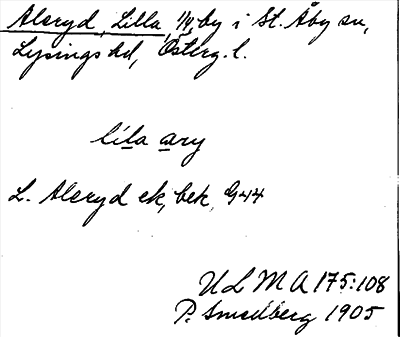 Alsryd, Lilla, 1/4, by i St. Åby sn,
Lysings hd, Österg. l.
lila ary
L. Alsryd ek, bek, G44
ULMA 175:108
P. Smedberg 1905